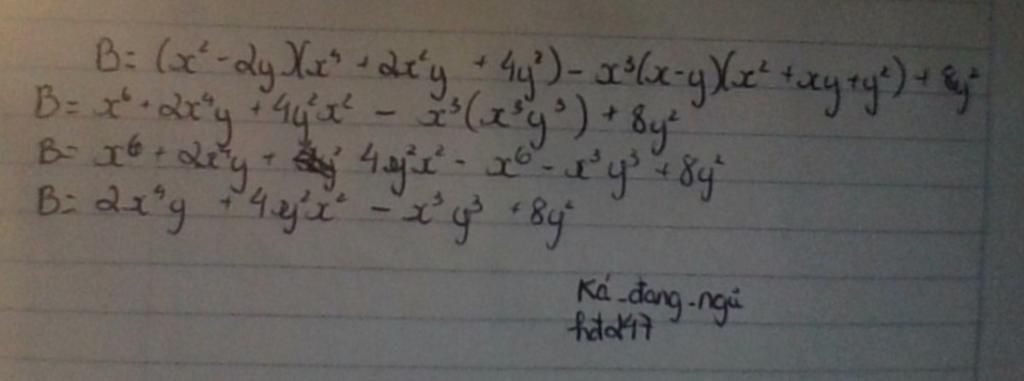 B = (x² - 2y)(x⁴ + 2x²y + 4y²) - x³(x-y)(x² + xy + y²) + 8y²
B = x⁶ + 2x⁴y + 4y²x² - x³(x³y³) + 8y²
B = x⁶ + 2x⁴y + 4y²x² - x⁶ - x³y³ + 8y²
B = 2x⁴y + 4y²x² - x³y³ + 8y²
Ká_đang_ngủ